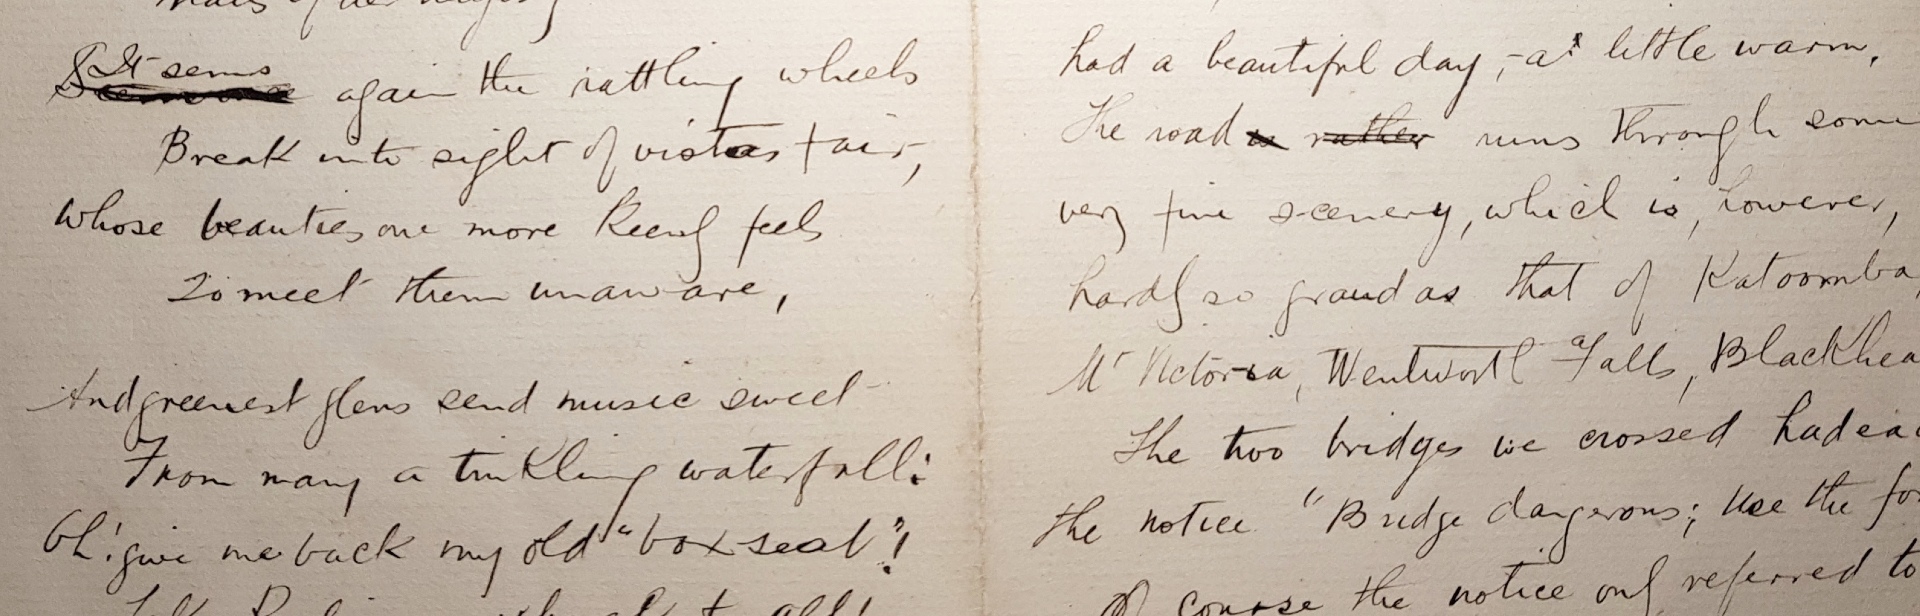 It seems again the rattling wheels
Break into sight of vistas fair,
Whose beauties one more keenly feels
To meet them unaware,
And greenest glens send music sweet
From many a tinkling waterfall:
Oh! give me back my old "box seat"!
had a beautiful day, – a little warm.
The road is rather runs through some
very fine scenery, which is, however,
hardly so grand as that of Katoomba,
Mt Victoria, Wentworth Falls, Blackhea
The two bridges we crossed had eac
the notice "Bridge dangerous; use the fo
Of course the notice only referred to